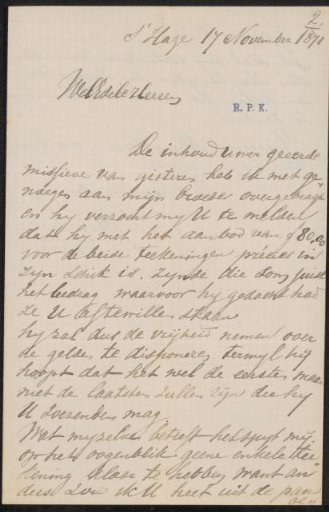 2
s'Hage 17 November 1871
WelEdele Heeren
R.P.K.
De inhoud uwer geeerde
missieve van gisteren heb ik met ge
noegen aan mijn broeder overgebragt
en hy verzoekt my U te melden
dat hy met het aanbod van ƒ 80,00
voor de beide teekeningen precies in
zyn schik is. zynde die som juist
het bedrag waarvoor hy gedacht had
ze U af te willen staan
hy zal dus de vrijheid nemen over
de gelden te disponeren, terwyl hy
hoopt dat het wel de eersten maar
niet de laatsten zullen zijn die hy
U toezenden mag.
Wat myzelve betreft het spyt mij
op het oogenblik geene enkele tee
kening klaar te hebben want an
ders zou ik U heet uit de pan